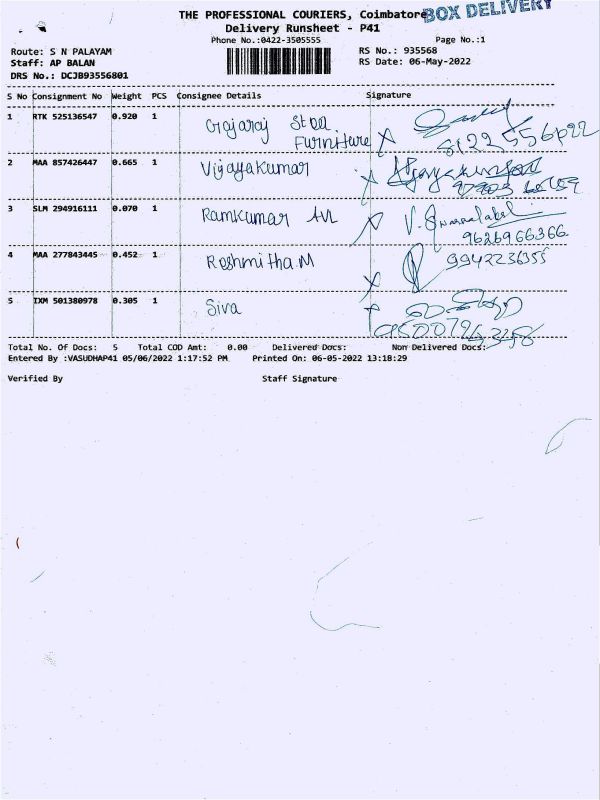 THE PROFESSIONAL COURIERS, Coimbatore
BOX DELIVERY
Delivery Runsheet - P41
Phone No.:0422-3505555
Page No.:1
Route: S N PALAYAM
RS No.: 935568
Staff: AP BALAN
RS Date: 06-May-2022
DRS No.: DCJB93556801
S No Consignment No Weight PCS Consignee Details Signature
1 RTK 525136547 0.920 1 Gajaraj Steel
Furniture
2 MAA 857426447 0.665 1 Vijayakumar
3 SLM 294916111 0.070 1 Ramkumar AVL
9626966366
4 MAA 277843445 0.452 1 Reshmitha M
9942236355
5 IXM 501380978 0.305 1 Siva
Total No. Of Docs: 5 Total COD Amt: 0.00 Delivered Docs: Non Delivered Docs:
Entered By :VASUDHAP41 05/06/2022 1:17:52 PM Printed On: 06-05-2022 13:18:29
Verified By Staff Signature